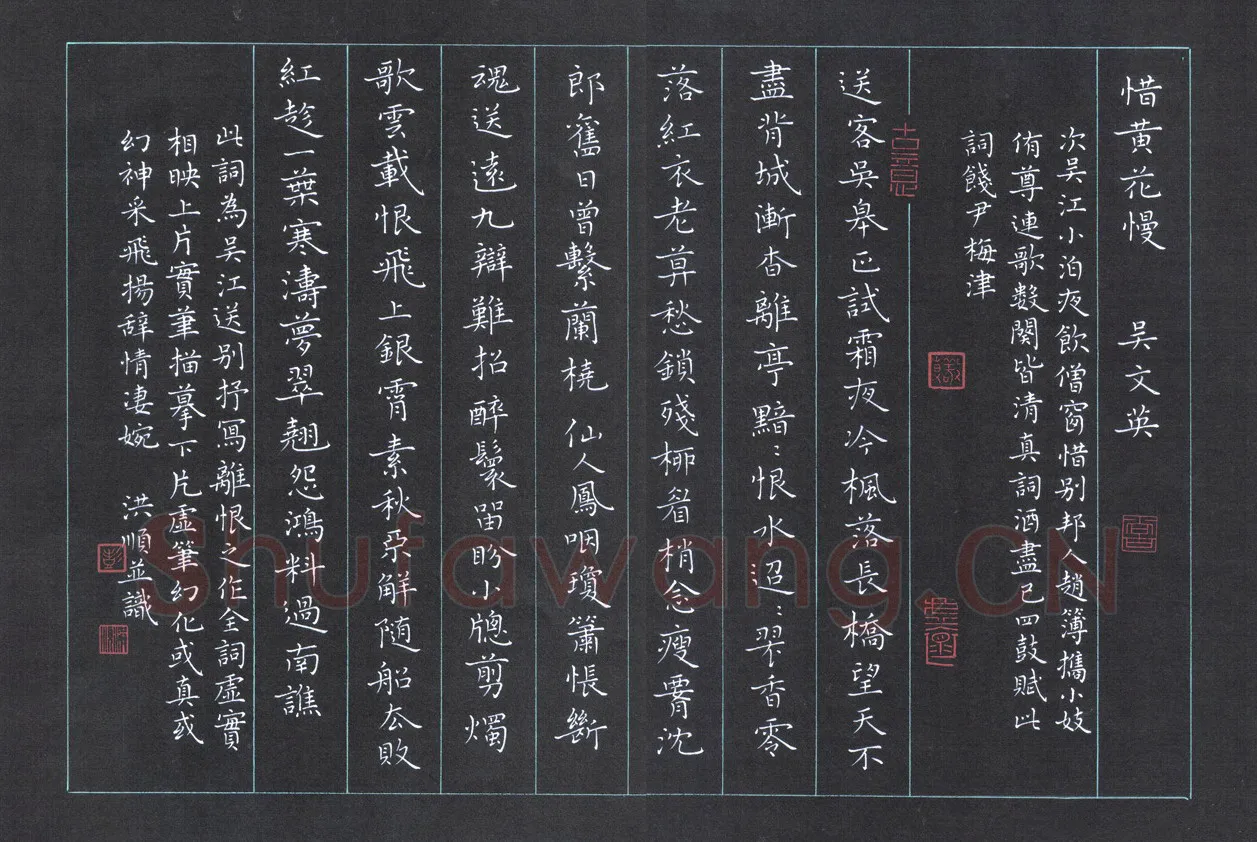 惜黄花慢 吴文英
次吴江小泊夜飲僧窗惜别邦人趙簿攜小妓
侑尊連歌數闋皆清真詞酒盡已四鼓賦此
詞餞尹梅津
送客吴皋正試霜夜冷楓落長橋望天不
盡背城漸杳離亭黯：恨水迢：翠香零
落紅衣老暮愁鎖殘柳眉梢念瘦霄沈
郎舊日曾繫蘭橈 仙人鳳咽瓊簫悵斷
魂送遠九辯難招醉鬟留盼小牕剪燭
歌雲載恨飛上銀霄素秋不解随船去敗
紅趁一葉寒濤夢翠翹怨鴻料過南譙
此詞為吴江送别抒寫離恨之作全詞虚實
相映上片實筆描摹下片虚筆幻化或真或
幻神采飛揚辞情凄婉 洪順並識
古意
彭
Shufawang.CN